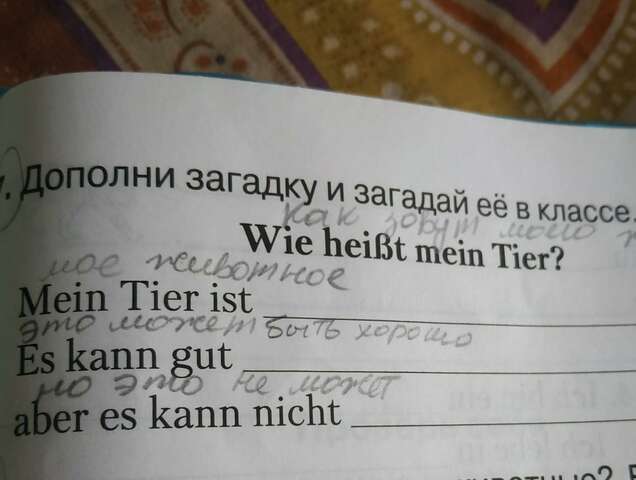 7. Дополни загадку и загадай её в классе.
Как зовут моно
Wie heißt mein Tier?
мое животное
Mein Tier ist
это может быть хорошо
Es kann gut
но это не может
aber es kann nicht